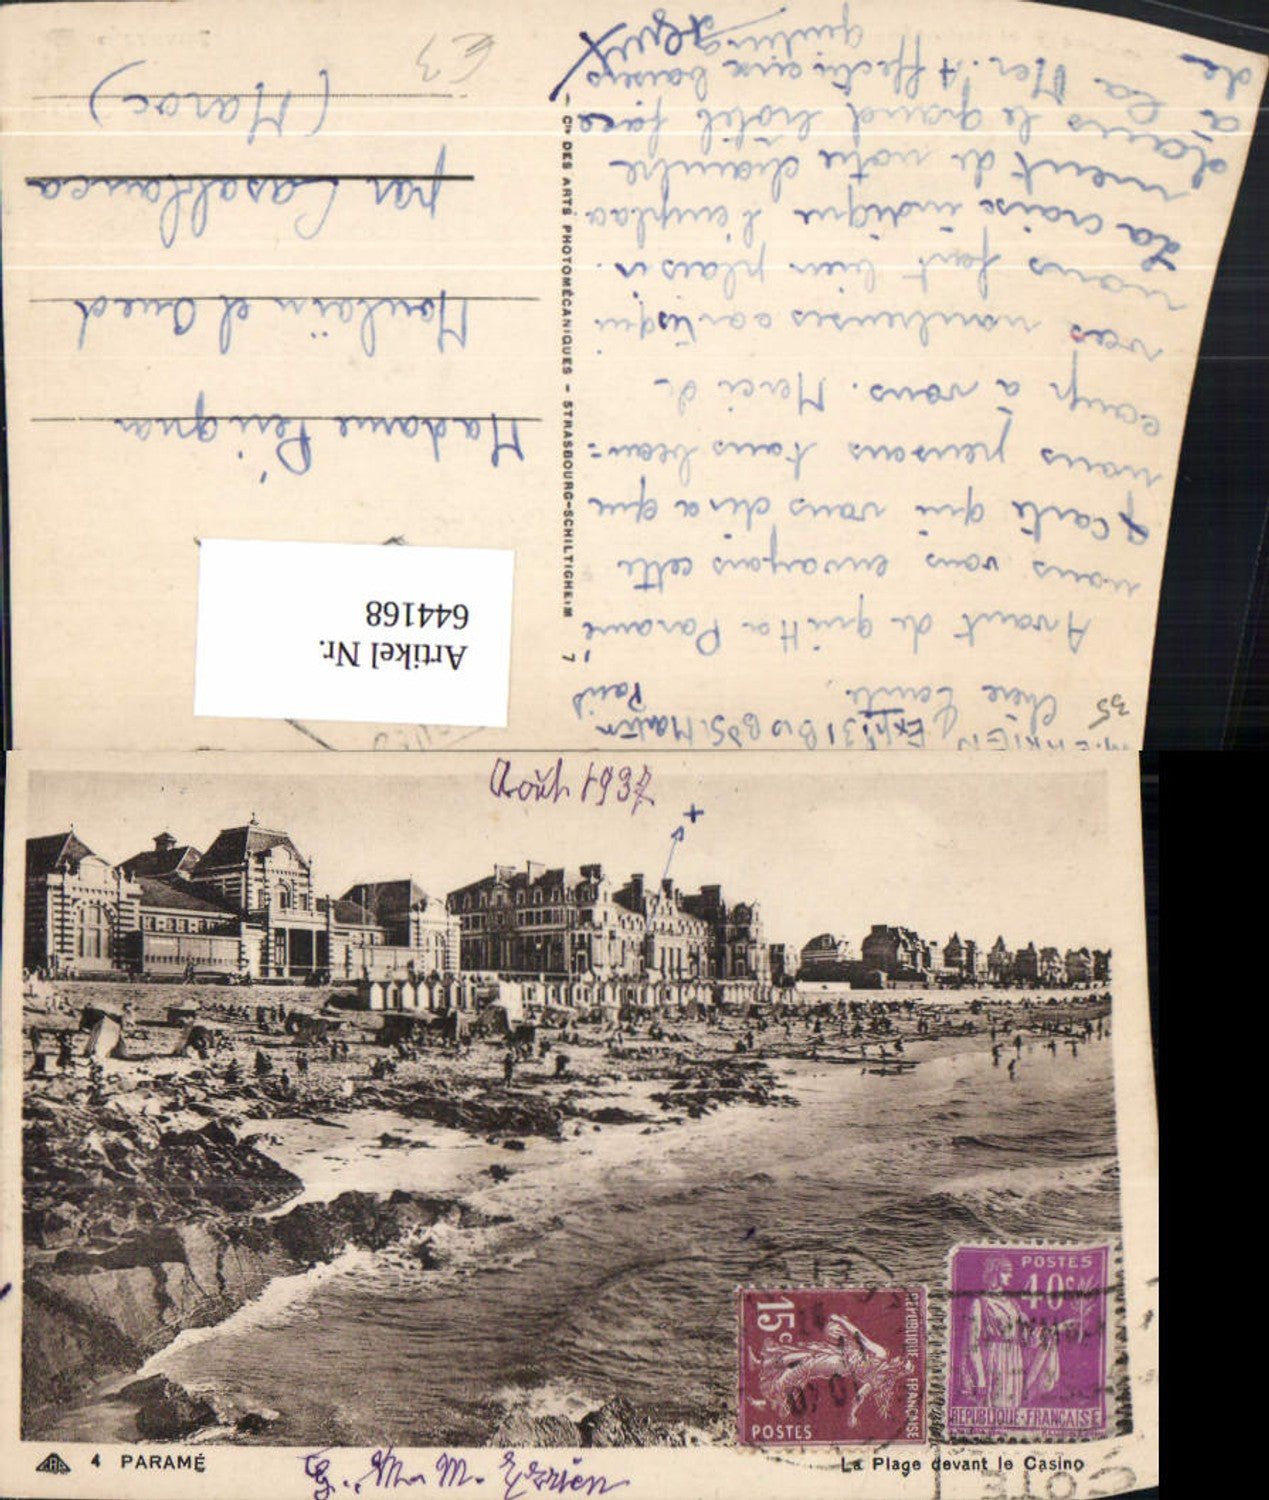 M. ERRIEN Expr 31 Bis Bd St Martin
Paris
35
Chère Tante
Avant de quitter Paramé
nous vous envoyons cette
carte qui vous dira que
nous pensons tous beau=
coup à vous. Merci de
vos nombreuses cartes qui
nous font bien plaisir.
La croix indique l'emplace
ment de notre chambre
dans le grand hôtel face
à la Mer. Affectueux baisers
de
7
— Cie DES ARTS PHOTOMÉCANIQUES — STRASBOURG-SCHILTIGHEIM
Artikel Nr.
644168
Madame Pérignon
Moulaïn el Oued
par Casablanca
(Maroc)
€3
Août 1937
+
POSTES
40c
REPUBLIQUE-FRANÇAISE
15c
REPUBLIQUE FRANÇAISE
POSTES
4 PARAMÉ
G., M. M. Errien
La Plage devant le Casino
COTE